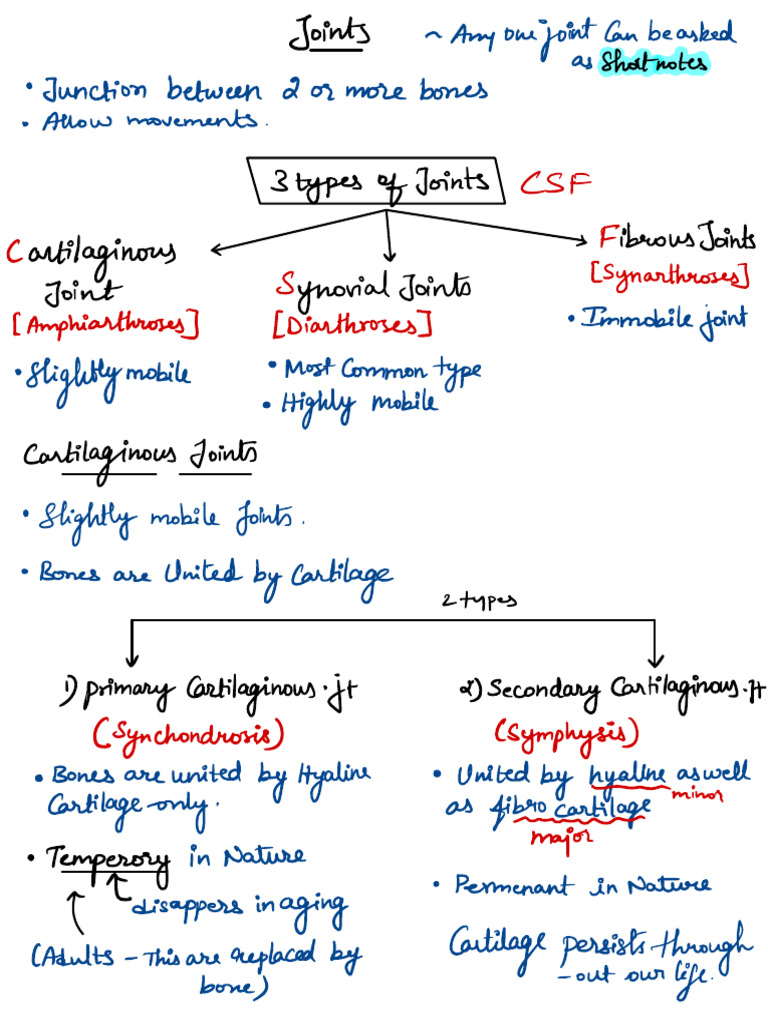 Joints ~ Any one joint Can be asked
as Short notes
• Junction between 2 or more bones
• Allow movements.
3 types of Joints CSF
Cartilaginous
Joint
[Amphiarthroses]
• Slightly mobile
Synovial Joints
[Diarthroses]
• Most Common type
• Highly mobile
Fibrous Joints
[Synarthroses]
• Immobile joint
Cartilaginous Joints
• Slightly mobile Joints.
• Bones are United by Cartilage
2 types
1) Primary Cartilaginous.jt
(Synchondrosis)
• Bones are united by Hyaline
Cartilage only.
• Temperory in Nature
disappers in aging
(Adults - This are replaced by
bone)
2) Secondary Cartilaginous.jt
(Symphysis)
• United by hyaline aswell
minor
as fibro cartilage
major
• Permenant in Nature
Cartilage persists through
-out our life.